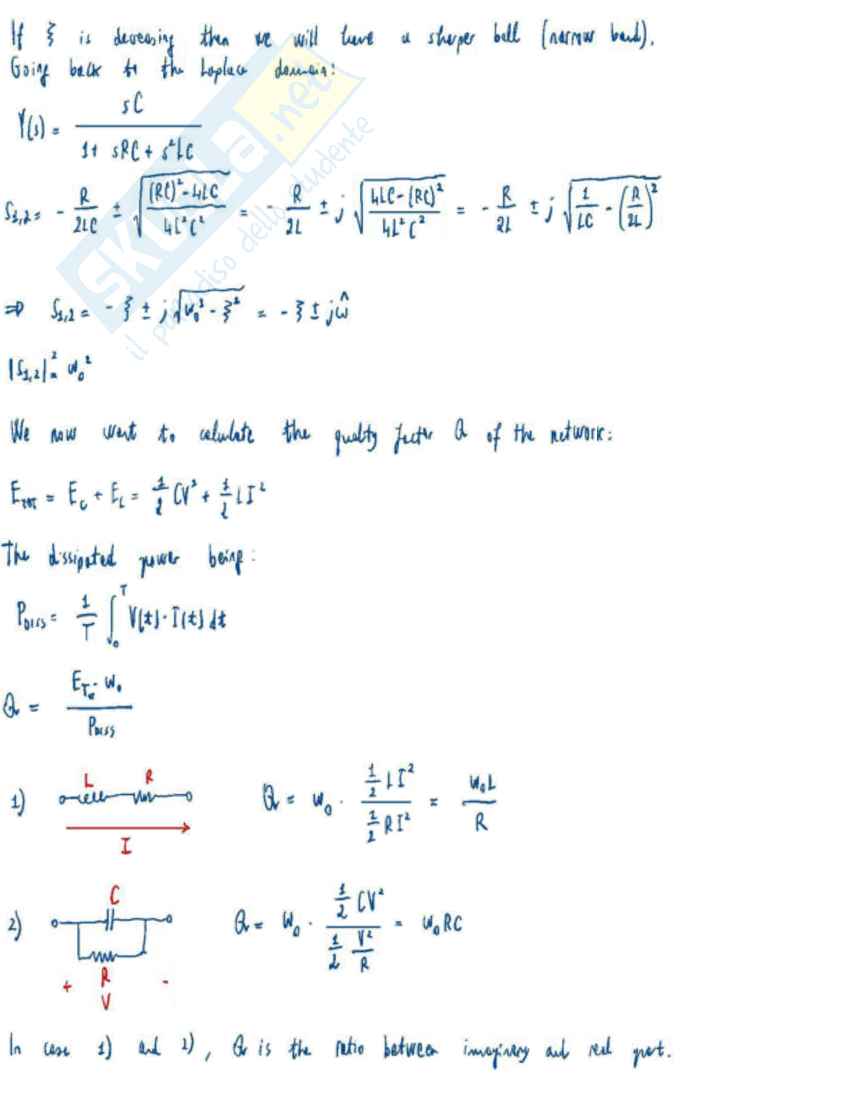 If ξ is decreasing then we will have a sharper bell (narrow band).
Going back to the Laplace domain:
Y(s) = sC / (1 + sRC + s²LC)
S₁,₂ = - R/2LC ± √((RC)² - 4LC / 4L²C²) = - R/2L ± j √(4LC - (RC)² / 4L²C²) = - R/2L ± j √(1/LC - (R/2L)²)
⇒ S₁,₂ = - ξ ± j√(ω₀² - ξ²) = - ξ ± jω̂
|S₁,₂|² = ω₀²
We now want to calculate the quality factor Q of the network:
E_TOT = E_C + E_L = 1/2 CV² + 1/2 LI²
The dissipated power being:
P_DISS = 1/T ∫₀ᵀ V(t)·I(t) dt
Q = E_Tot · ω₀ / P_DISS
1) L R I Q = ω₀ · (1/2 LI²) / (1/2 RI²) = ω₀L / R
2) C R + V - Q = ω₀ · (1/2 CV²) / (1/2 V²/R) = ω₀RC
In case 1) and 2), Q is the ratio between imaginary and real part.
SKUOLA.net
il paradiso dello studente